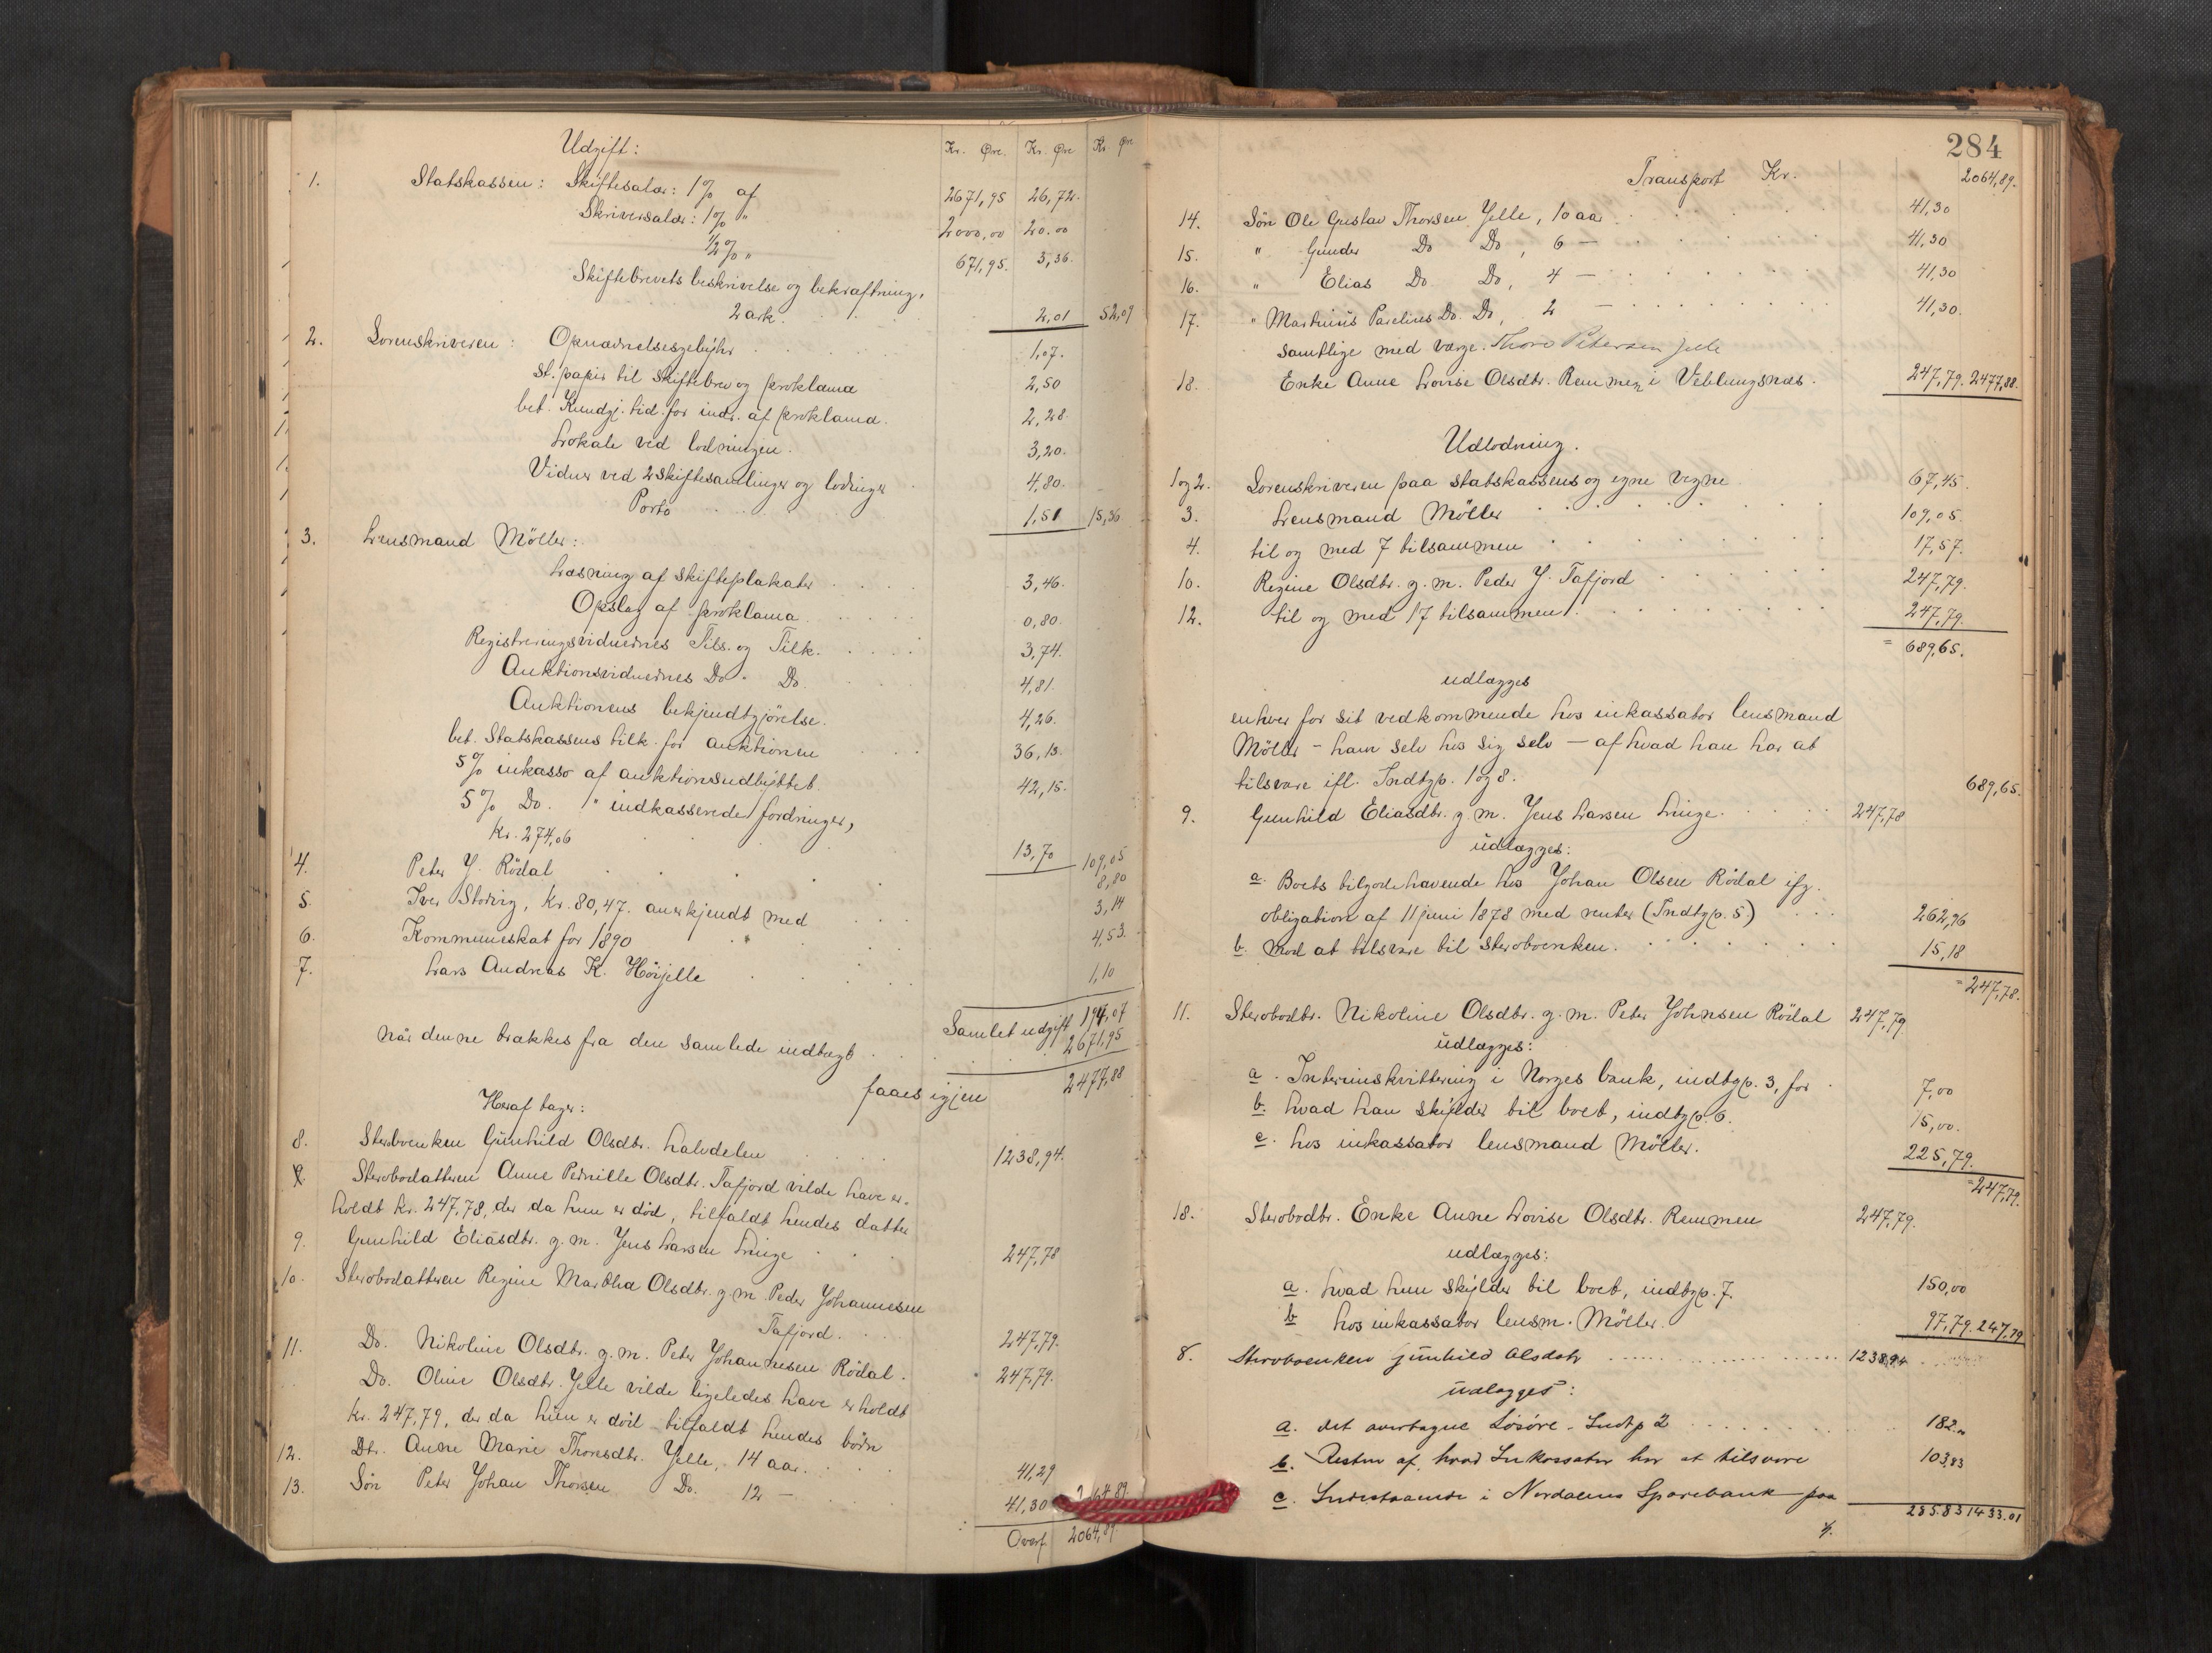 Udgift:
Kr. Øre. Kr. Øre Kr Øre
1. Statskassen: Skiftesalær: 1% af 2671,95 26,72.
Skriversalær: 1% " 2000,00 20.00
½% " 671,95. 3,36.
Skiftebrevets beskrivelse og bekræftning,
2 ark. 2,01 52,09
2. Sorenskriveren: Opnævnelsesgebyhr 1,07.
St. papir til skiftebrev og proklama 2,50
bet. Kundgj. tid. for indr. af proklama. 2,28.
Lokale ved lodningen. 3,20.
Vidner ved 2 skiftesamlinger og lodninger 4,80.
Porto 1,51 15,36
3. Lensmand Möller:
Læsning af skifteplakater 3,46.
Opslag af proklama 0,80.
Registreringsvidnernes Tils. og Tilk. 3,74.
Auktionsvidnernes Do. Do. 4,81.
Auktionens bekjendtgjörelse. 4,26.
bet. Statskassens tilk. for auktionen 36,13.
5% inkasso af auktionsudbyttet. 42,15.
5% Do. " indkasserede fordringer,
Kr. 274,06 13,70 109,05
4. Peter J. Rödal 8,80
5. Iver Storvig, Kr. 80,47. anerkjendt med 3,14
6. Kommuneskat for 1890 4,53.
7. Lars Andreas K. Höijelle 1,10
Samlet udgift 194,07
Når denne trækkes fra den samlede indtægt 2671,95
faaes igjen 2477,88
Heraf tager:
8. Sterboenken Gunhild Olsdtr. halvdelen 1238,94.
Sterbodatteren Anne Pernille Olsdtr. Tafjord vilde have er-
holdt Kr. 247,78, der da hun er död, tilfaldt hendes datter
9. Gunhild Eliasdtr. g. m. Jens Larsen Linge 247,78
10. Sterbodatteren Regine Martha Olsdtr. g. m. Peder Johannesen
Tafjord. 247,79.
11. Do. Nikoline Olsdtr. g. m. Peter Johannesen Rödal. 247,79.
Do. Oline Olsdtr. Jelle vilde ligeledes have erholdt
Kr. 247,79, der da hun er död tilfaldt hendes börn
12. Dtr. Anne Marie Thorsdtr. Jelle, 14 aar. 41,29
13. Sön Peter Johan Thorsen Do. 12 — 41,30 2064,89
Overf. 2064,89
284
Transport Kr. 2064,89.
14. Sön Ole Gustav Thorsen Jelle, 10 aar 41,30
15. " Gunder Do Do, 6 — 41,30
16. " Elias Do. Do, 4 — 41,30
17. " Martinus Parelius Do. Do, 2 — 41,30.
samtlige med værge. Thore Petersen Jelle
18. Enke Anne Lovise Olsdtr. Remmen i Veblungsnæs. 247,79. 2477,88.
Udlodning.
1 og 2. Sorenskriveren paa statskassens og egne vegne 67,45.
3. Lensmand Möller 109,05.
4. til og med 7 tilsammen 17,57.
10. Regine Olsdtr. g. m. Peder J. Tafjord 247,79.
12. til og med 17 tilsammen 247,79.
= 689,65.
udlægges
enhver for sit vedkommende hos inkassator lensmand
Möller - ham selv hos sig selv — af hvad han har at
tilsvare ifl. Indtgp. 1 og 8. 689,65.
9. Gunhild Eliasdtr. g. m. Jens Larsen Linge. 247,78
udlægges:
a. Boets tilgodehavende hos Johan Olsen Rödal ifg.
obligation af 11 juni 1878 med renter (Indtgp. 5) 262,96
b. mod at tilsvare til sterboenken. 15,18
= 247,78.
11. Sterbodtr. Nikoline Olsdtr. g. m. Peter Johnsen Rödal 247,79
udlægges:
a. Interimskvittering i Norges bank, indtgp. 3, for 7,00
b. hvad han skylder til boet, indtgp. 6. 15,00.
c. hos inkassator lensmand Möller. 225,79.
= 247,79.
18. Sterbodtr. Enke Anne Lovise Olsdtr. Remmen 247,79.
udlægges:
a. hvad hun skylder til boet, indtgp. 7. 150,00
b hos inkassator lensm. Möller. 97,79. 247,79
8. Sterboenken Gunhild Olsdtr 1238,94
udlægges:
a. det overtagne Lösöre - Indtp 2 182.„
b. Resten af hvad Inkassator har at tilsvare 103,83
c. Indestaaende i Nordalens Sparebank paa
285.83 1433.01